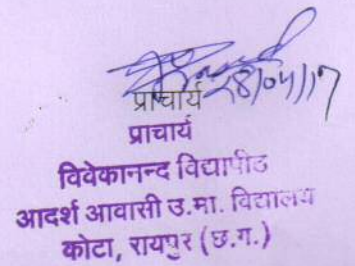 28/04/17
प्राचार्य
प्राचार्य
विवेकानन्द विद्यापीठ
आदर्श आवासी उ.मा. विद्यालय
कोटा, रायपुर (छ.ग.)